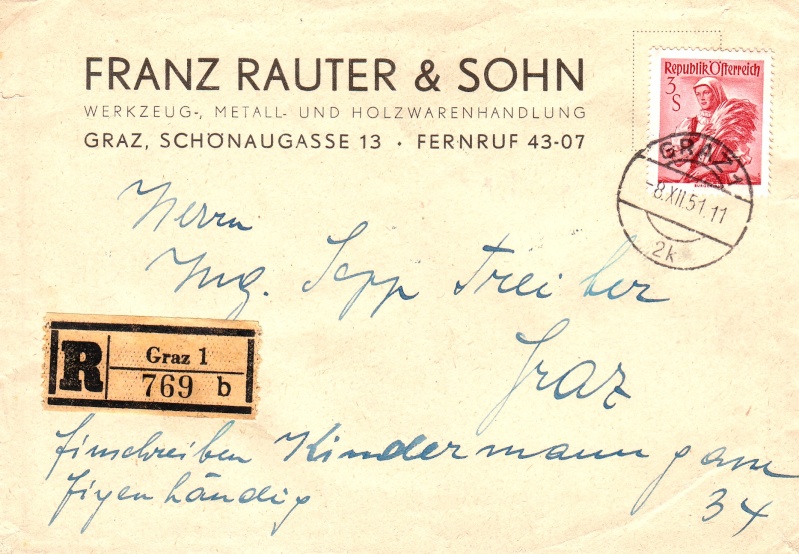 FRANZ RAUTER & SOHN
WERKZEUG-, METALL- UND HOLZWARENHANDLUNG
GRAZ, SCHÖNAUGASSE 13 · FERNRUF 43-07
Republik Österreich
3
S
GRAZ 1
-8.XII.51.11
2k
Herrn
Ing. Sepp Treiber
Graz
R
Graz 1
769 b
Einschreiben Kindermanngasse
Eigenhändig 34